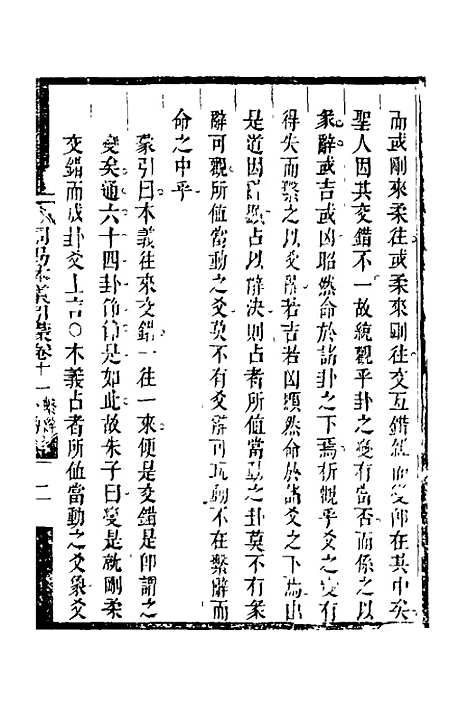 而或剛來柔往或柔來剛往交互錯綜而變即在其中矣
聖人因其交錯不一故統觀乎卦之變有當否而係之以
彖辭或吉或凶昭然命於諸卦之下焉析觀乎爻之變有
得失而繫之以爻辭若吉若凶顯然命於諸爻之下焉由
是道因疑以占以辭決則占者所值當動之卦莫不有彖
辭可觀所値當動之爻莫不有爻辭可玩動不在繫辭而
命之中乎
蒙引曰本義往來交錯一往一來便是交錯是即謂之
變矣通六十四卦節節是如此故朱子曰變是就剛柔
交錯而成卦爻上言〇本義占者所值當動之爻象爻
周易本義引蒙卷十一 繫辭 二